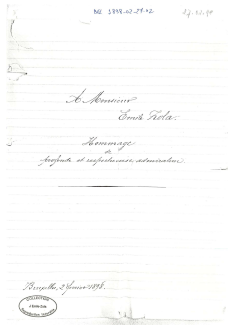 BEL 1898.02.27-02
A Monsieur
Emile Zola.
Hommage
de
profonde et respectueuse admiration.
Bruxelles, 27 février 1898.
COLLECTION